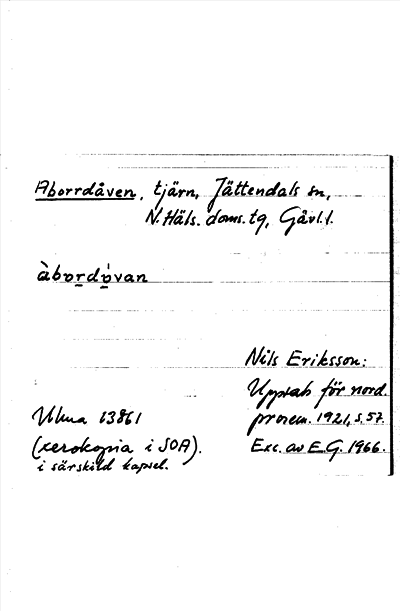 Aborrdåven, tjärn, Jättendals sn,
N. Häls. doms. tg, Gävl. l.
àbo̱rdo̱̍van
Nils Eriksson:
Uppsats för nord.
prosem. 1921, s. 57.
Exc. av E.G. 1966.
Ulma 13861
(xerokopia i SOA).
i särskild kapsel.